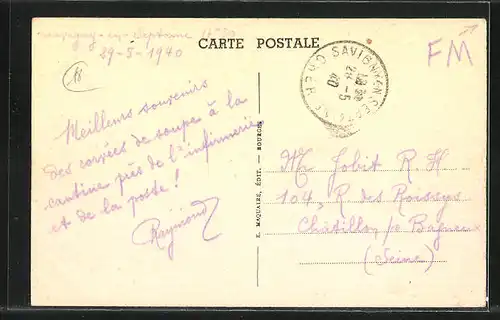 en Septaine 12h30
29-5-1940
CARTE POSTALE
FM
18
SAVIGNY-EN-SEPTAINE CHER
29-5
40
Meilleurs souvenirs
des corvées de soupe à la
cantine près de l'infirmerie
et de la poste !
Raymond
E. MAQUAIRE, ÉDIT. - BOURGES
M Jobit R H
104, R des Roissys
Châtillon s/s Bagneux
(Seine)